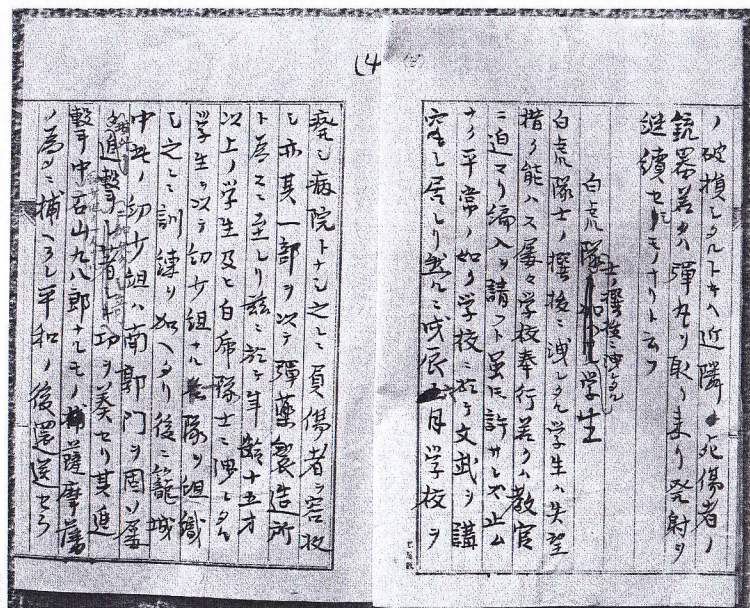 14
ノ破損シタルトキハ近隣ノ死傷者ノ
銃器若クハ弾丸ヲ取リ来リ発射ヲ
継續セルモノナリト云フ
白虎隊士ノ撰抜ニ洩レタル学生
白虎隊士ノ撰抜ニ洩レタル学生ハ失望
措ク能ハス屡々学校奉行若クハ教官
ニ迫マリ編入ヲ請フト虽モ許サレス止ム
ナク平常ノ如ク学校ニ於テ文武ヲ講
究シ居レリ然ルニ戊辰五月学校ヲ
廃シ病院トナシ之レニ負傷者ヲ容収
シ亦其一部ヲ以テ彈薬製造所
ト為スニ至レリ茲ニ於テ年齢十五才
以上ノ学生及ヒ白虎隊士ニ洩レタル
学生ヲ以テ幼少組ナル隊ヲ組織
シ之レニ訓練ヲ加ヘタリ後ニ籠城
中此ノ幼少組ハ南郭门ヲ固メ屡
追撃シ功ヲ奏セリ其追
撃中石山九八郎ナルモノ薩摩藩
ノ為ニ捕ヘラレ平和ノ後還送セラ